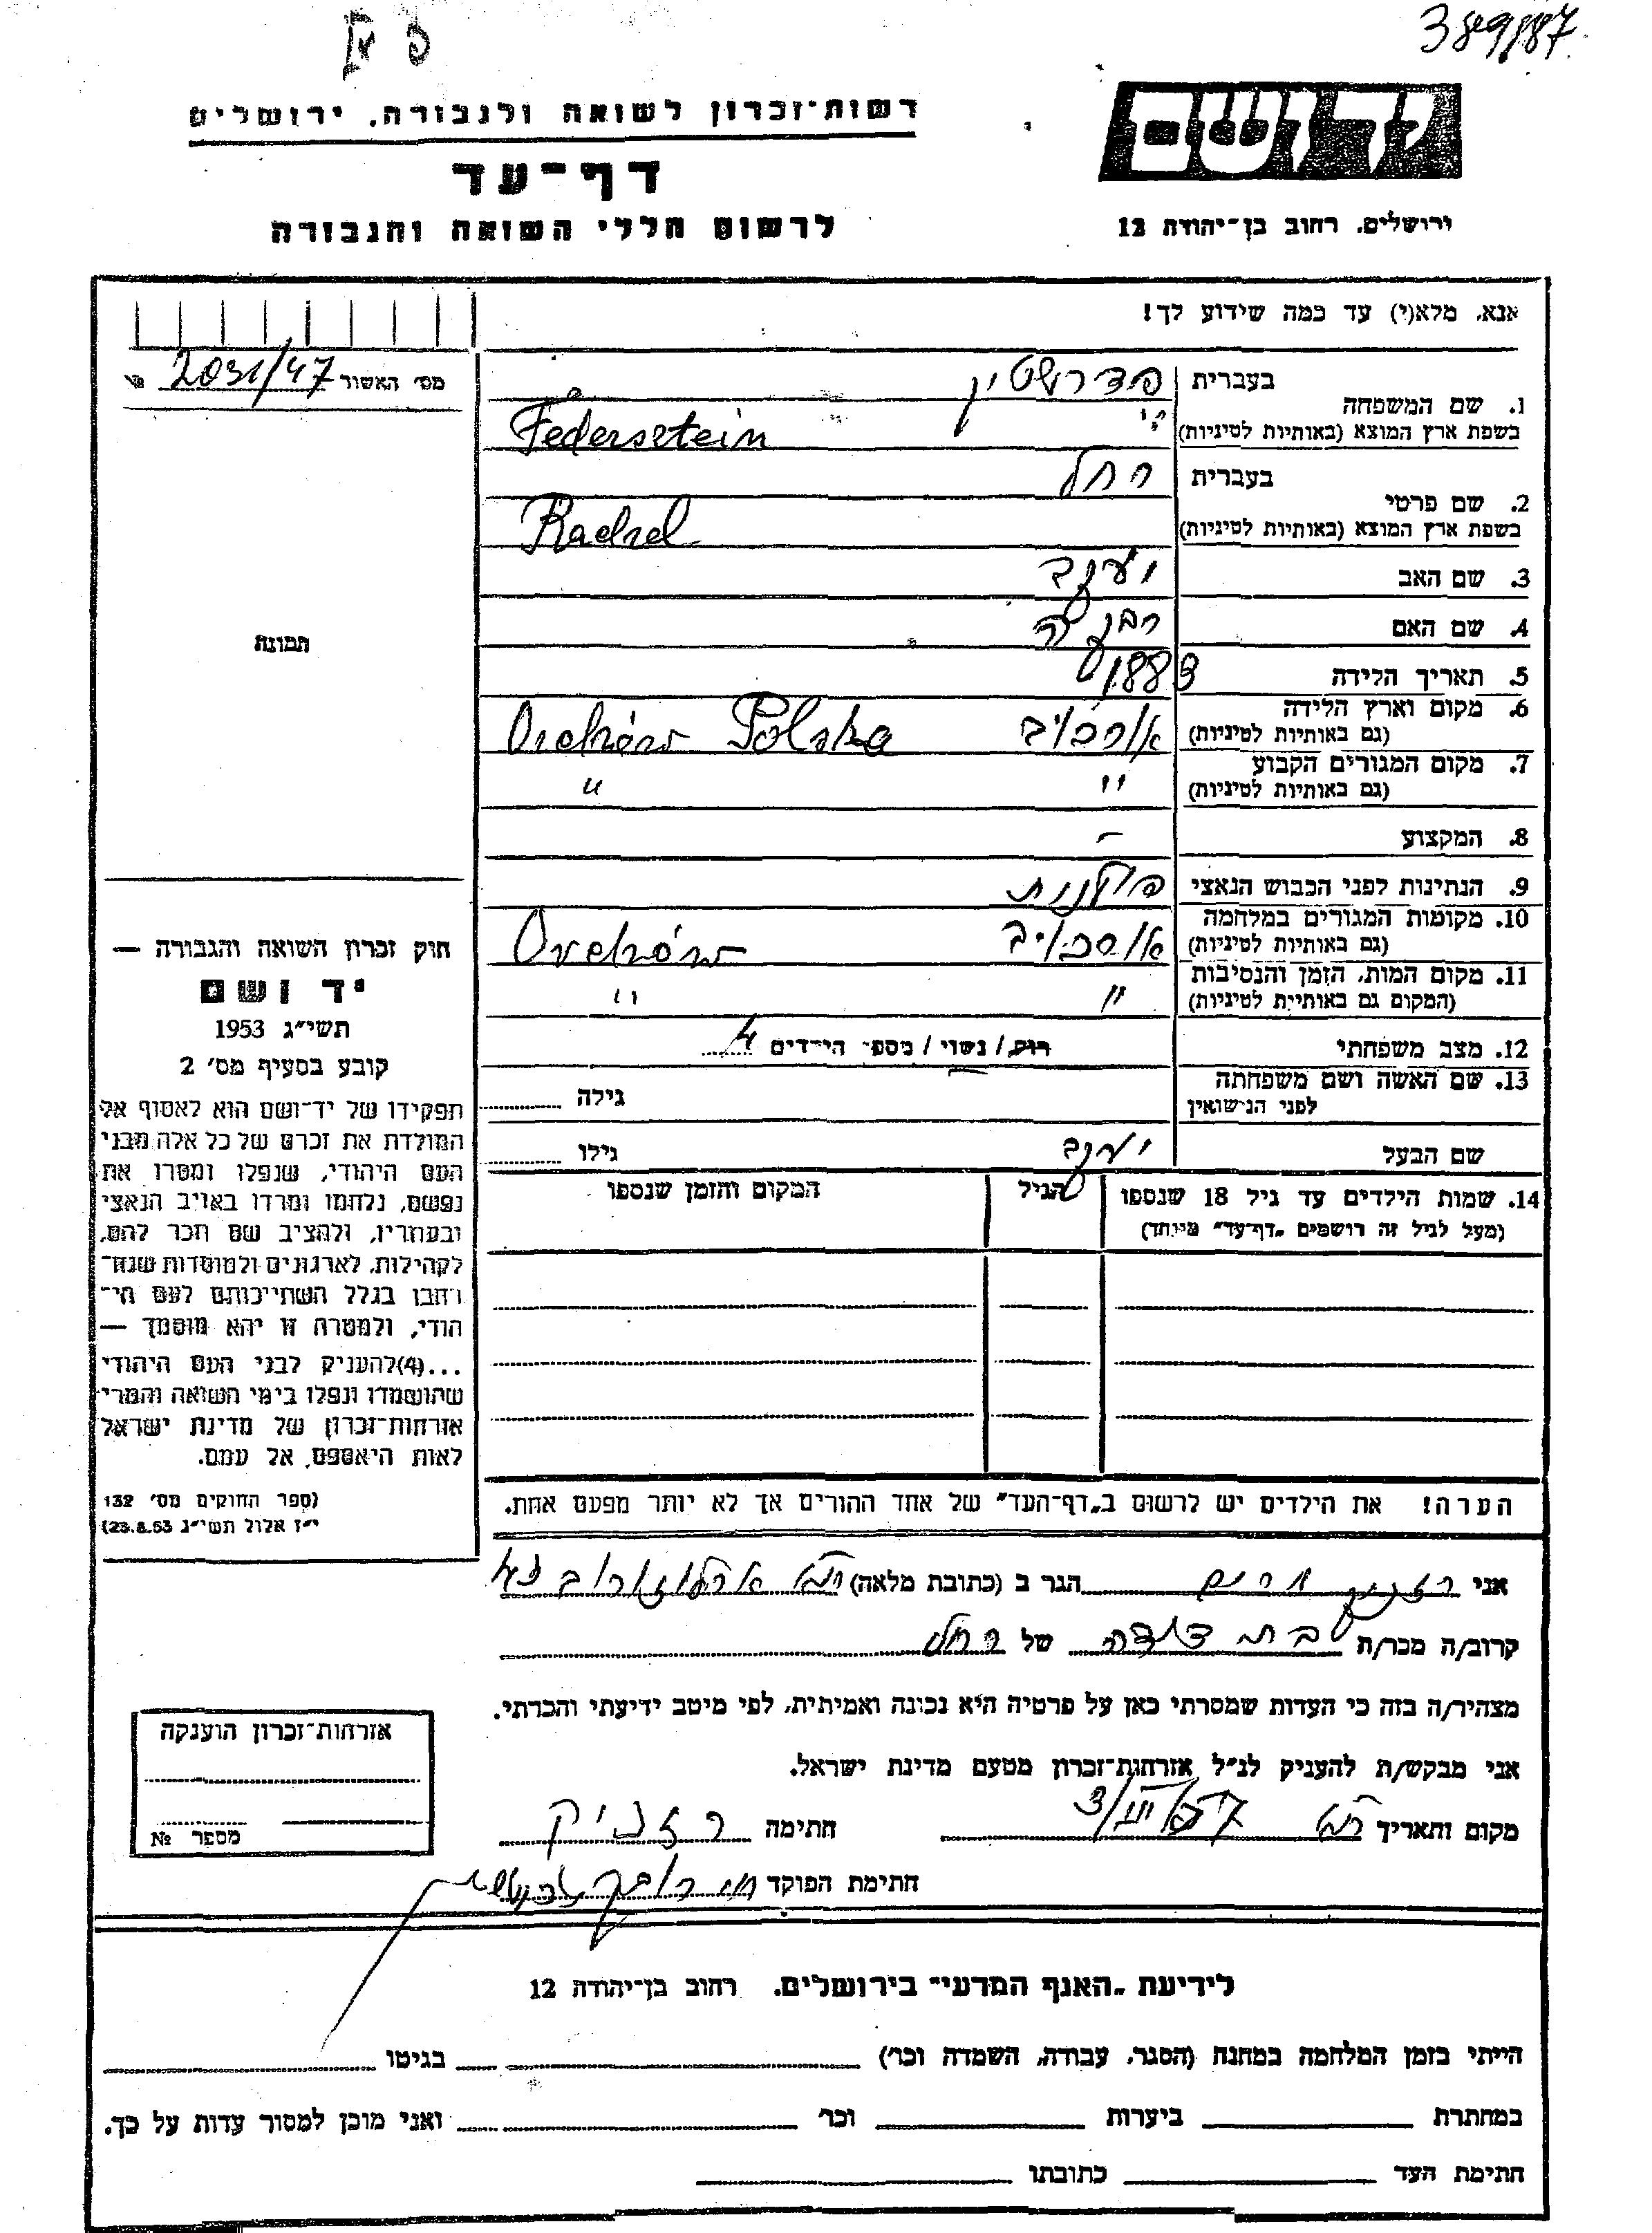 389/87
יד ושם
ירושלים, רחוב בן־יהודה 12
רשות־זכרון לשואה ולגבורה, ירושלים
דף־עד
לרשום חללי השואה והגבורה
אנא, מלא(י) עד כמה שידוע לך!
מס׳ האשור 2031/47 №
1. שם המשפחה
בעברית פדרשטין
בשפת ארץ המוצא (באותיות לטיניות) Federsztein
2. שם פרטי
בעברית רחל
בשפת ארץ המוצא (באותיות לטיניות) Rachel
3. שם האב יעקב
4. שם האם
5. תאריך הלידה 1883
6. מקום וארץ הלידה
(גם באותיות לטיניות) Orchów Polska
7. מקום המגורים הקבוע
(גם באותיות לטיניות) " "
8. המקצוע -
9. הנתינות לפני הכבוש הנאצי פולנית
10. מקומות המגורים במלחמה
(גם באותיות לטיניות) Orchów
11. מקום המות, הזמן והנסיבות
(המקום גם באותיות לטיניות) " "
12. מצב משפחתי רוק / נשוי / מספר הילדים 4
13. שם האשה ושם משפחתה
לפני הנישואין גילה
שם הבעל יעקב גילו
14. שמות הילדים עד גיל 18 שנספו הגיל המקום והזמן שנספו
(מעל לגיל זה רושמים „דף־עד” מיוחד)
הערה! את הילדים יש לרשום ב„דף־העד” של אחד ההורים אך לא יותר מפעם אחת.
תמונה
חוק זכרון השואה והגבורה —
יד ושם
תשי״ג 1953
קובע בסעיף מס׳ 2
תפקידו של יד־ושם הוא לאסוף אל
המולדת את זכרם של כל אלה מבני
העם היהודי, שנפלו ומסרו את
נפשם, נלחמו ומרדו באויב הנאצי
ובעוזריו, ולהציב שם וזכר להם,
לקהילות, לארגונים ולמוסדות שנח־
רבו בגלל השתייכותם לעם הי־
הודי, ולמטרה זו יהא מוסמך —
...(4)להעניק לבני העם היהודי
שהושמדו ונפלו בימי השואה והמרי
אזרחות־זכרון של מדינת ישראל
לאות היאספם אל עמם.
(ספר החוקים מס׳ 132
י״ז אלול תשי״ג 23.8.53)
אני רזניק הגר ב (כתובת מלאה)
קרוב/ה מכר/ת בת דודה של רחל
מצהיר/ה בזה כי העדות שמסרתי כאן על פרטיה היא נכונה ואמיתית, לפי מיטב ידיעתי והכרתי.
אני מבקש/ת להעניק לנ״ל אזרחות־זכרון מטעם מדינת ישראל.
מקום ותאריך חתימה רזניק
חתימת הפוקד
אזרחות־זכרון הוענקה
מספר №
לידיעת „האגף המדעי” בירושלים. רחוב בן־יהודה 12
הייתי בזמן המלחמה במחנה (הסגר, עבודה, השמדה וכו׳) בגיטו
במחתרת ביערות וכו׳ ואני מוכן למסור עדות על כך.
חתימת העד כתובתו